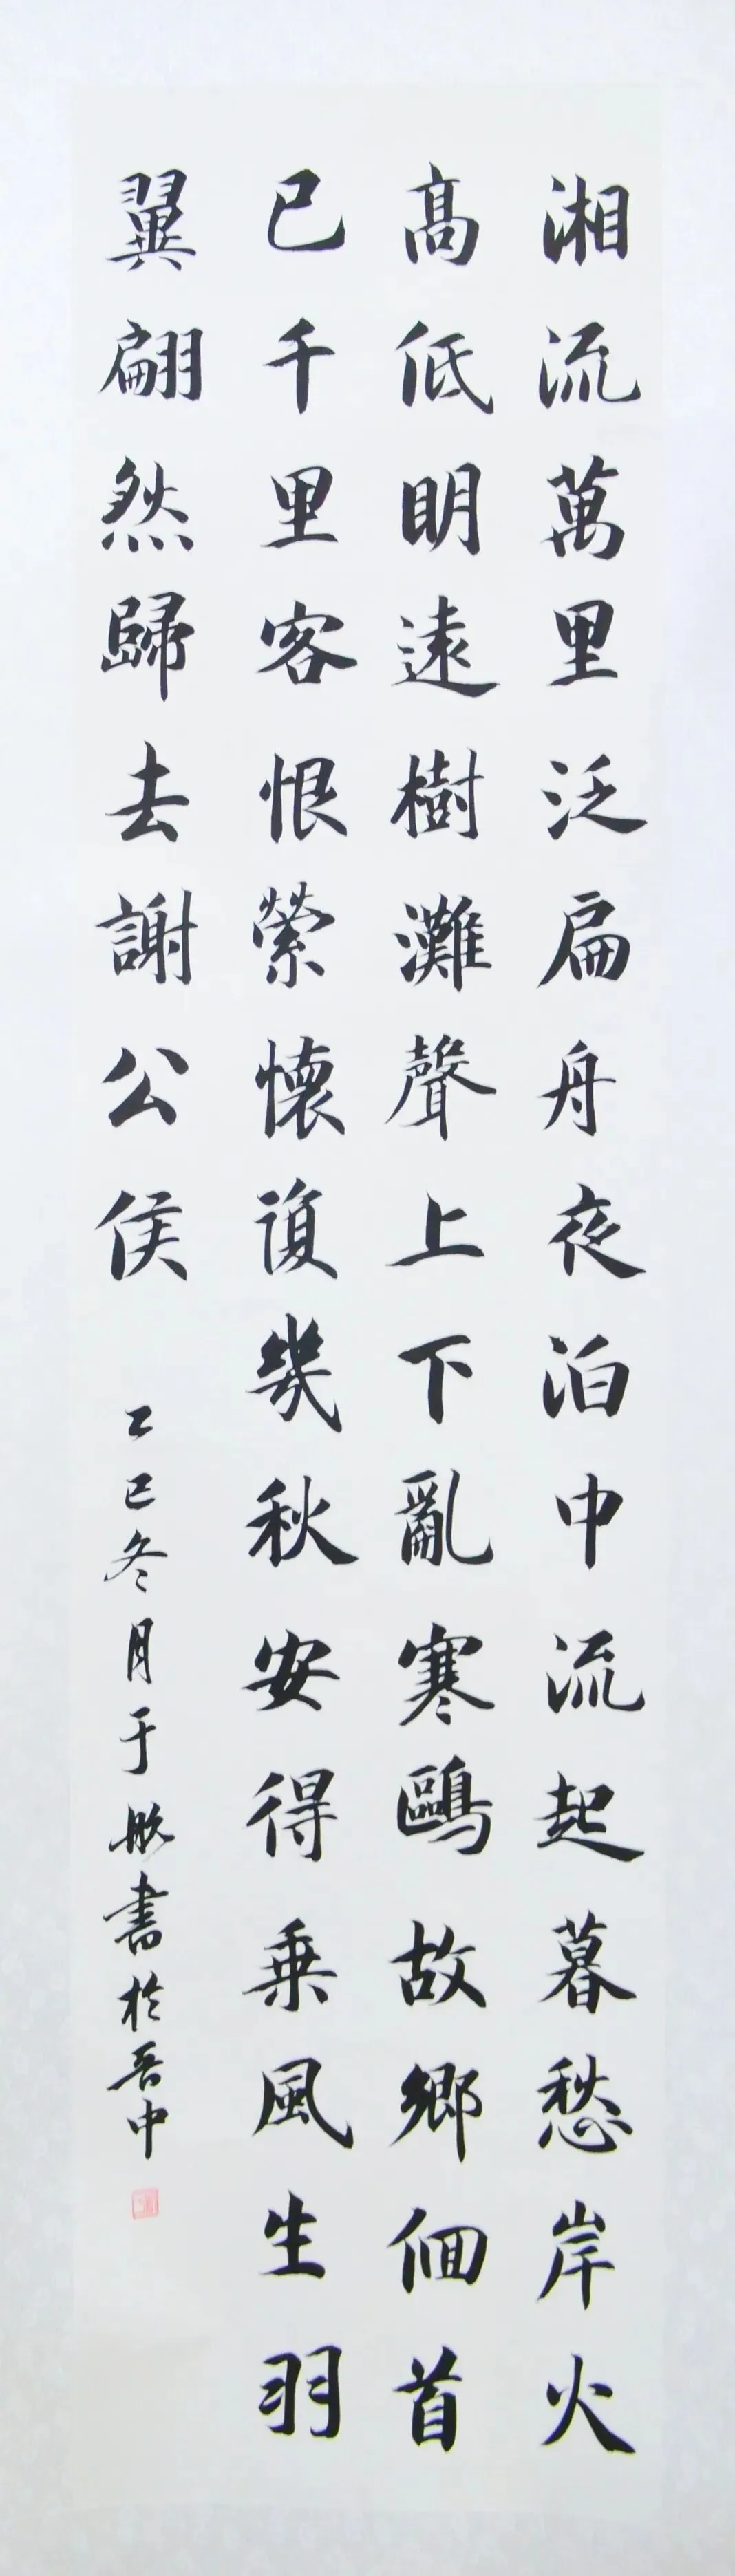 湘流萬里泛扁舟夜泊中流起暮愁岸火
高低明遠樹灘聲上下亂寒鷗故鄉佪首
已千里客恨縈懷復幾秋安得乗風生羽
翼翩然歸去謝公侯
乙巳冬月于 書於吾中